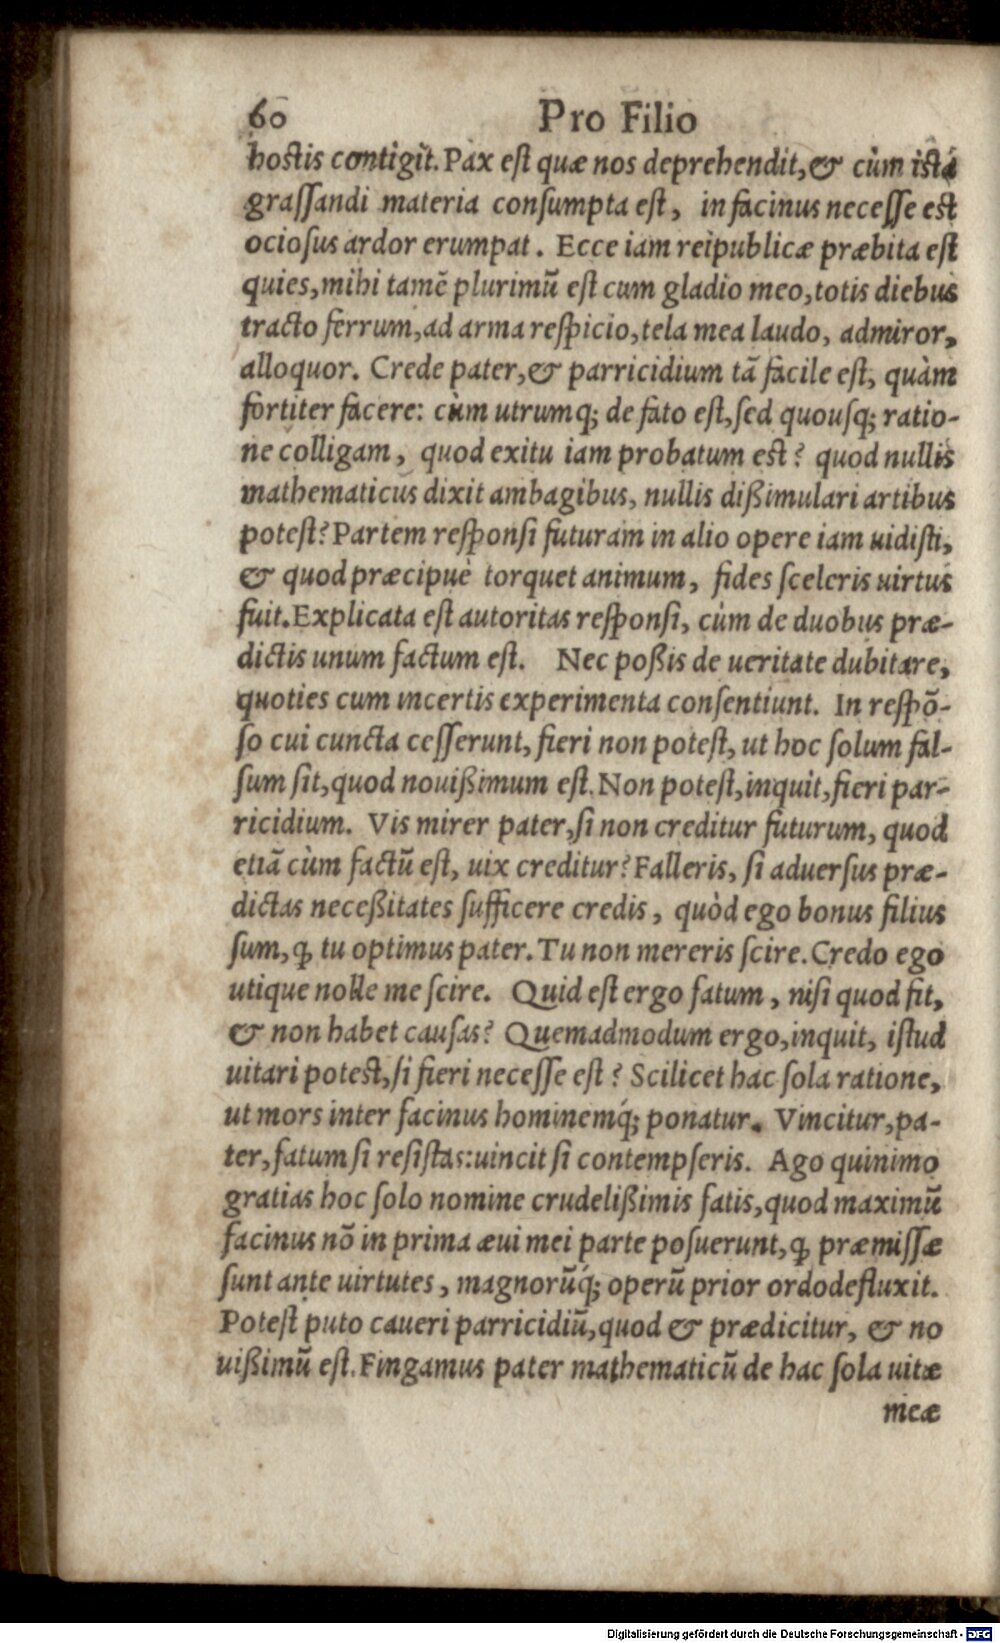 60 Pro Filio
hostis contigit. Pax est quæ nos deprehendit, & cùm istâ
grassandi materia consumpta est, in facinus necesse est
ociosus ardor erumpat. Ecce iam reipublicæ præbita est
quies, mihi tamē plurimū est cum gladio meo, totis diebus
tracto ferrum, ad arma respicio, tela mea laudo, admiror,
alloquor. Crede pater, & parricidium tā facile est, quàm
fortiter facere: cùm utrumq; de fato est, sed quousq; ratio-
ne colligam, quod exitu iam probatum est? quod nullis
mathematicus dixit ambagibus, nullis dißimulari artibus
potest? Partem responsi futuram in alio opere iam uidisti,
& quod præcipuè torquet animum, fides sceleris uirtus
fuit. Explicata est autoritas responsi, cùm de duobus præ-
dictis unum factum est. Nec poßis de ueritate dubitare,
quoties cum incertis experimenta consentiunt. In respō-
so cui cuncta cesserunt, fieri non potest, ut hoc solum fal-
sum sit, quod nouißimum est. Non potest, inquit, fieri par-
ricidium. Vis mirer pater, si non creditur futurum, quod
etiā cùm factū est, uix creditur? Falleris, si aduersus præ-
dictas neceßitates sufficere credis, quòd ego bonus filius
sum, ꝙ tu optimus pater. Tu non mereris scire. Credo ego
utique nolle me scire. Quid est ergo fatum, nisi quod fit,
& non habet causas? Quemadmodum ergo, inquit, istud
uitari potest, si fieri necesse est? Scilicet hac sola ratione,
ut mors inter facinus hominemq́; ponatur. Vincitur, pa-
ter, fatum si resistas: uincit si contempseris. Ago quinimo
gratias hoc solo nomine crudelißimis fatis, quod maximū
facinus nō in prima æui mei parte posuerunt, ꝙ præmissæ
sunt ante uirtutes, magnorūq́; operū prior ordo defluxit.
Potest puto caueri parricidiū, quod & prædicitur, & no
uißimū est. Fingamus pater mathematicū de hac sola uitæ
meæ
Digitalisierung gefördert durch die Deutsche Forschungsgemeinschaft - DFG